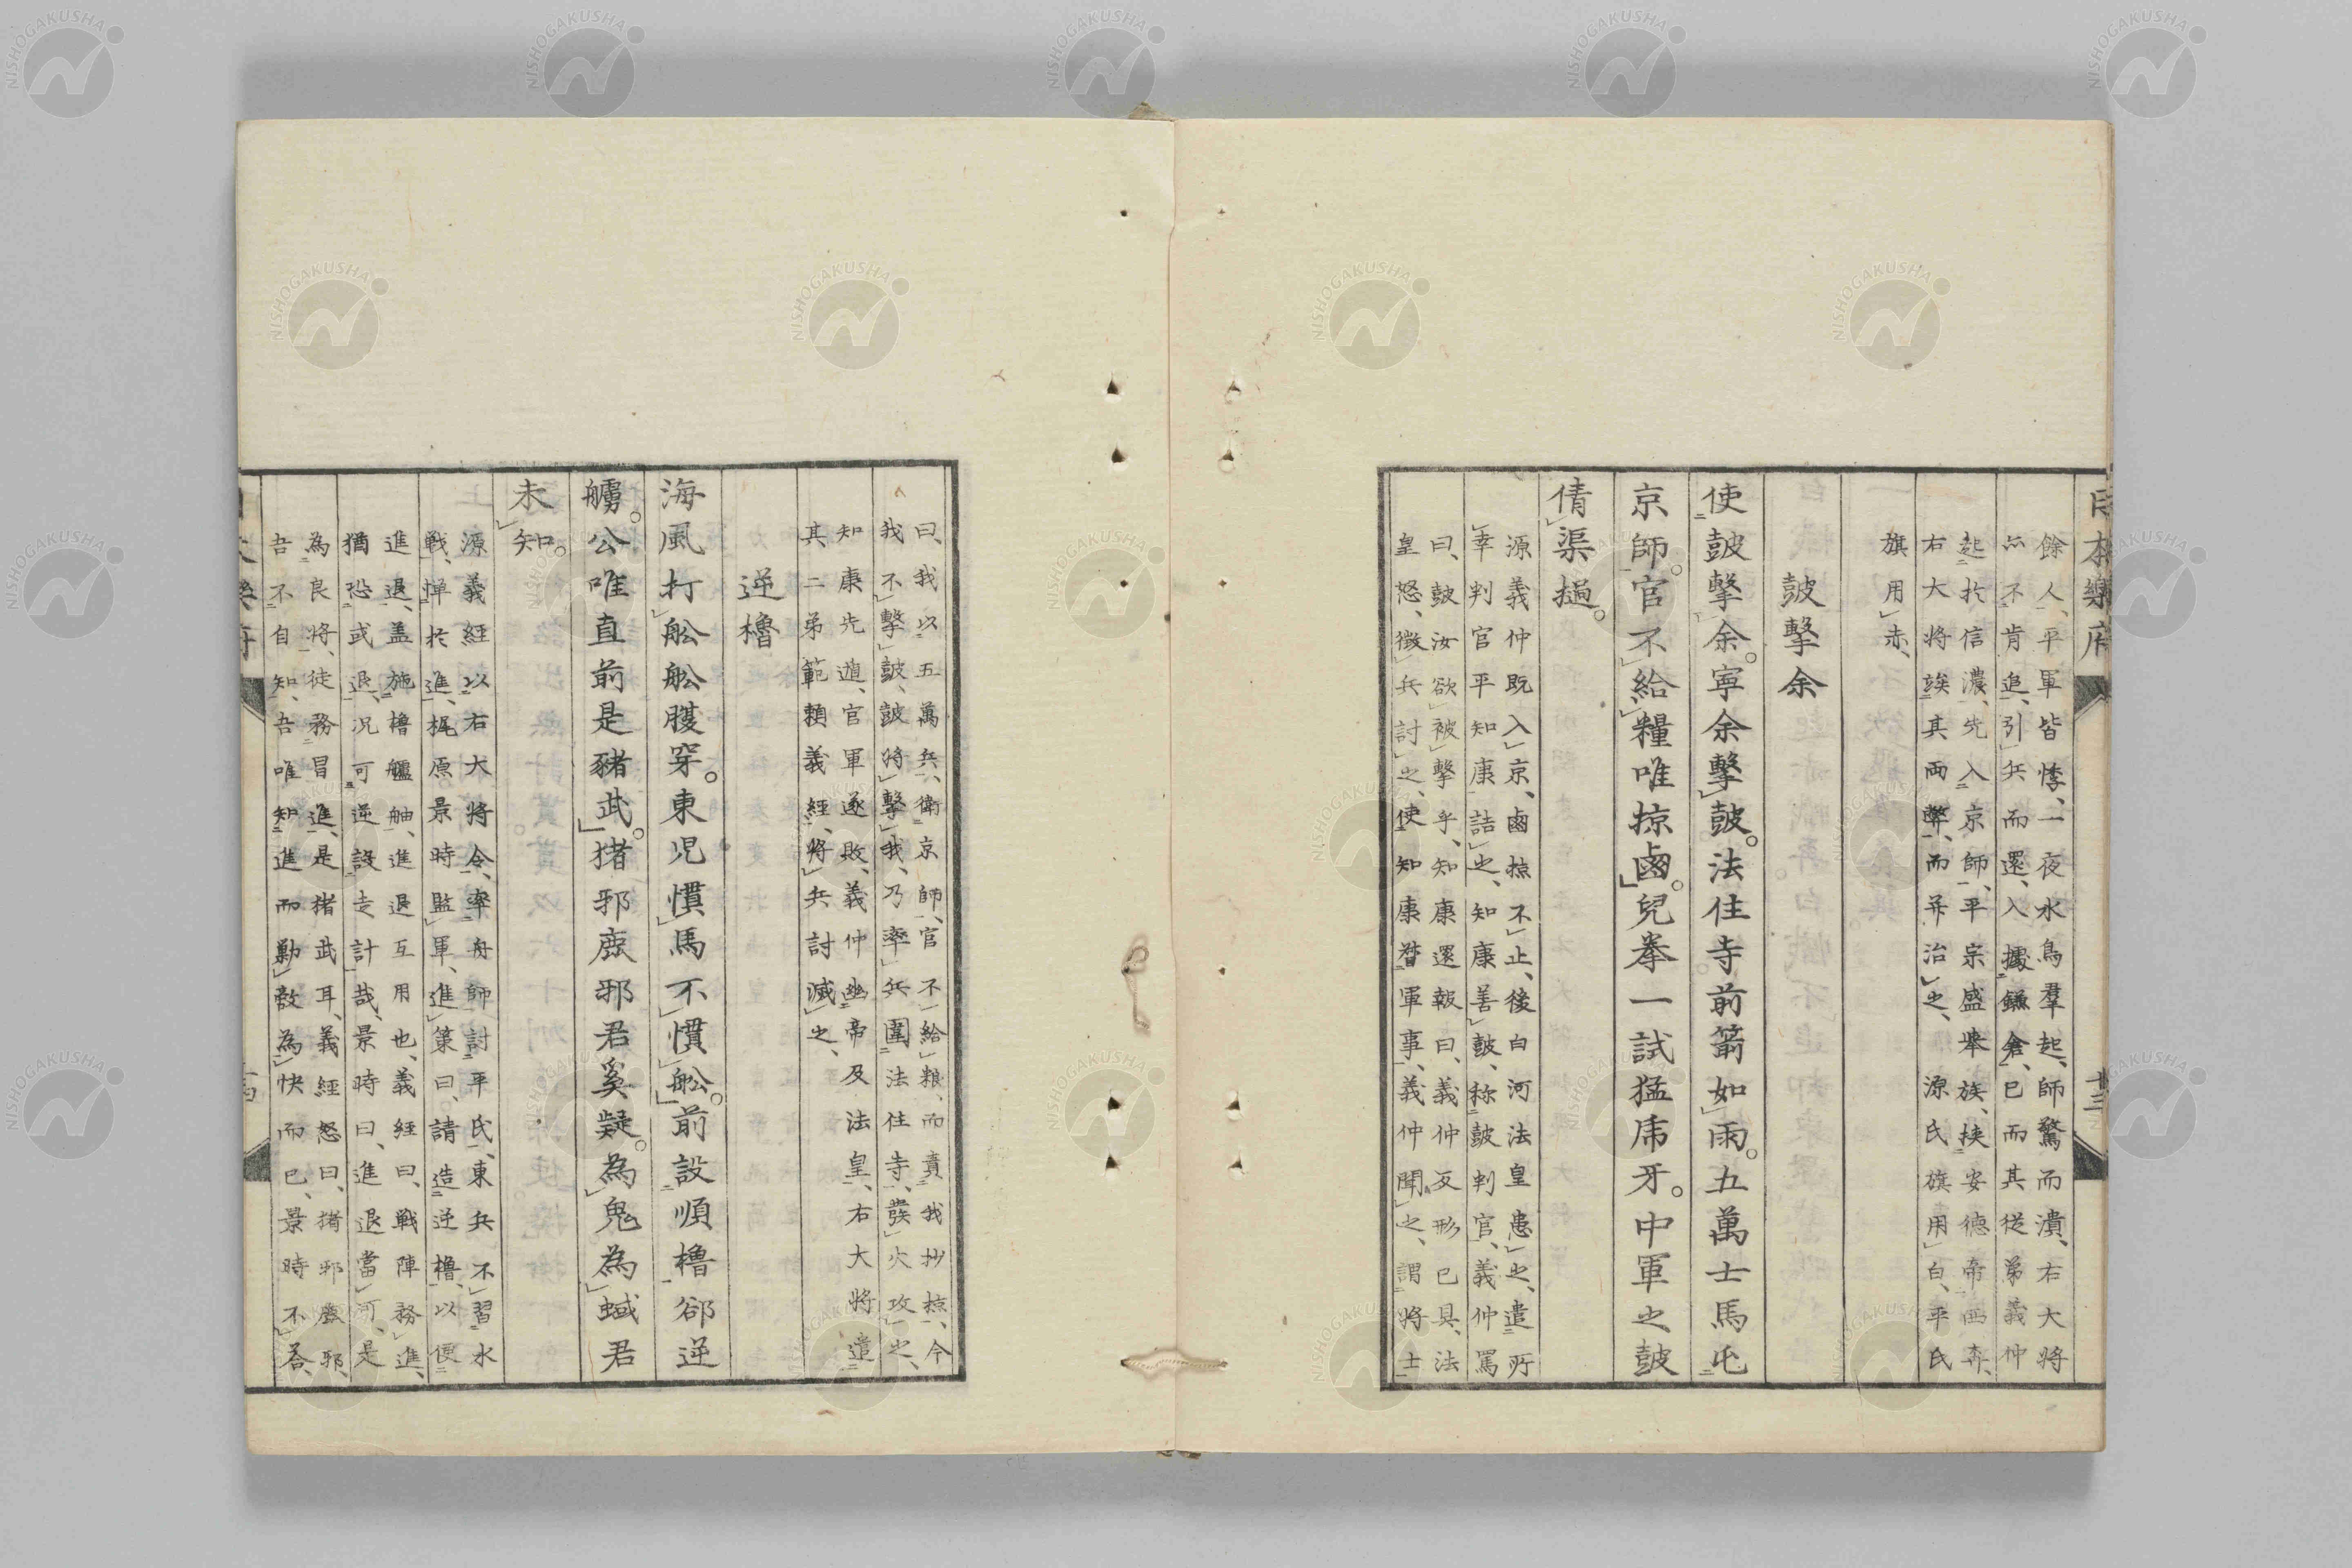 日本樂府
十三
餘人、平軍皆悸、一夜水鳥羣起、師驚而潰、右大將
不肯追、引兵而還、入據鎌倉、已而其從弟義仲
起於信濃、先入京師、平宗盛擧族、挾安德帝西奔、
右大將竢其両弊、而并治之、源氏旗用白、平氏
旗用赤、
鼓擊余
使鼓擊余。寧余擊鼓。法住寺前箭如雨。五萬士馬屯
京師。官不給糧唯掠鹵。兒拳一試猛乕牙。中軍之鼓
倩渠撾。
源義仲既入京、鹵掠不止、後白河法皇患之、遣所
幸判官平知康詰之、知康善鼓、称鼓判官、義仲罵
曰、鼓汝欲被擊乎、知康還報曰、義仲反形已具、法
皇怒、徴兵討之、使知康督軍事、義仲聞之、謂將士
曰、我以五萬兵、衛京師、官不給粮、而責我抄掠、今
我不擊鼓、鼓將擊我、乃率兵圍法住寺、發火攻之、
知康先遁、官軍遂敗、義仲幽帝及法皇、右大將遣
其二弟範賴義經、將兵討滅之、
逆櫓
海風打舩舩腹穿。東児慣馬不慣舩。前設順櫓郤逆
艣。公唯直前是豬武。猪邪鹿邪君奚疑。為鬼為蜮君
未知。
源義経以右大将令、率舟師討平氏、東兵不習水
戦、憚於進、梶原景時監軍、進策曰、請造逆櫓、以便
進退、盖施櫓艫舳、進退互用也、義経曰、戦陣務進、
猶恐或退、况可逆設走計哉、景時曰、進退當可、是
為良将、徒務冒進、是猪武耳、義經怒曰、猪邪鹿邪、
吾不自知、吾唯知進而勦敵為快而已、景時不荅、